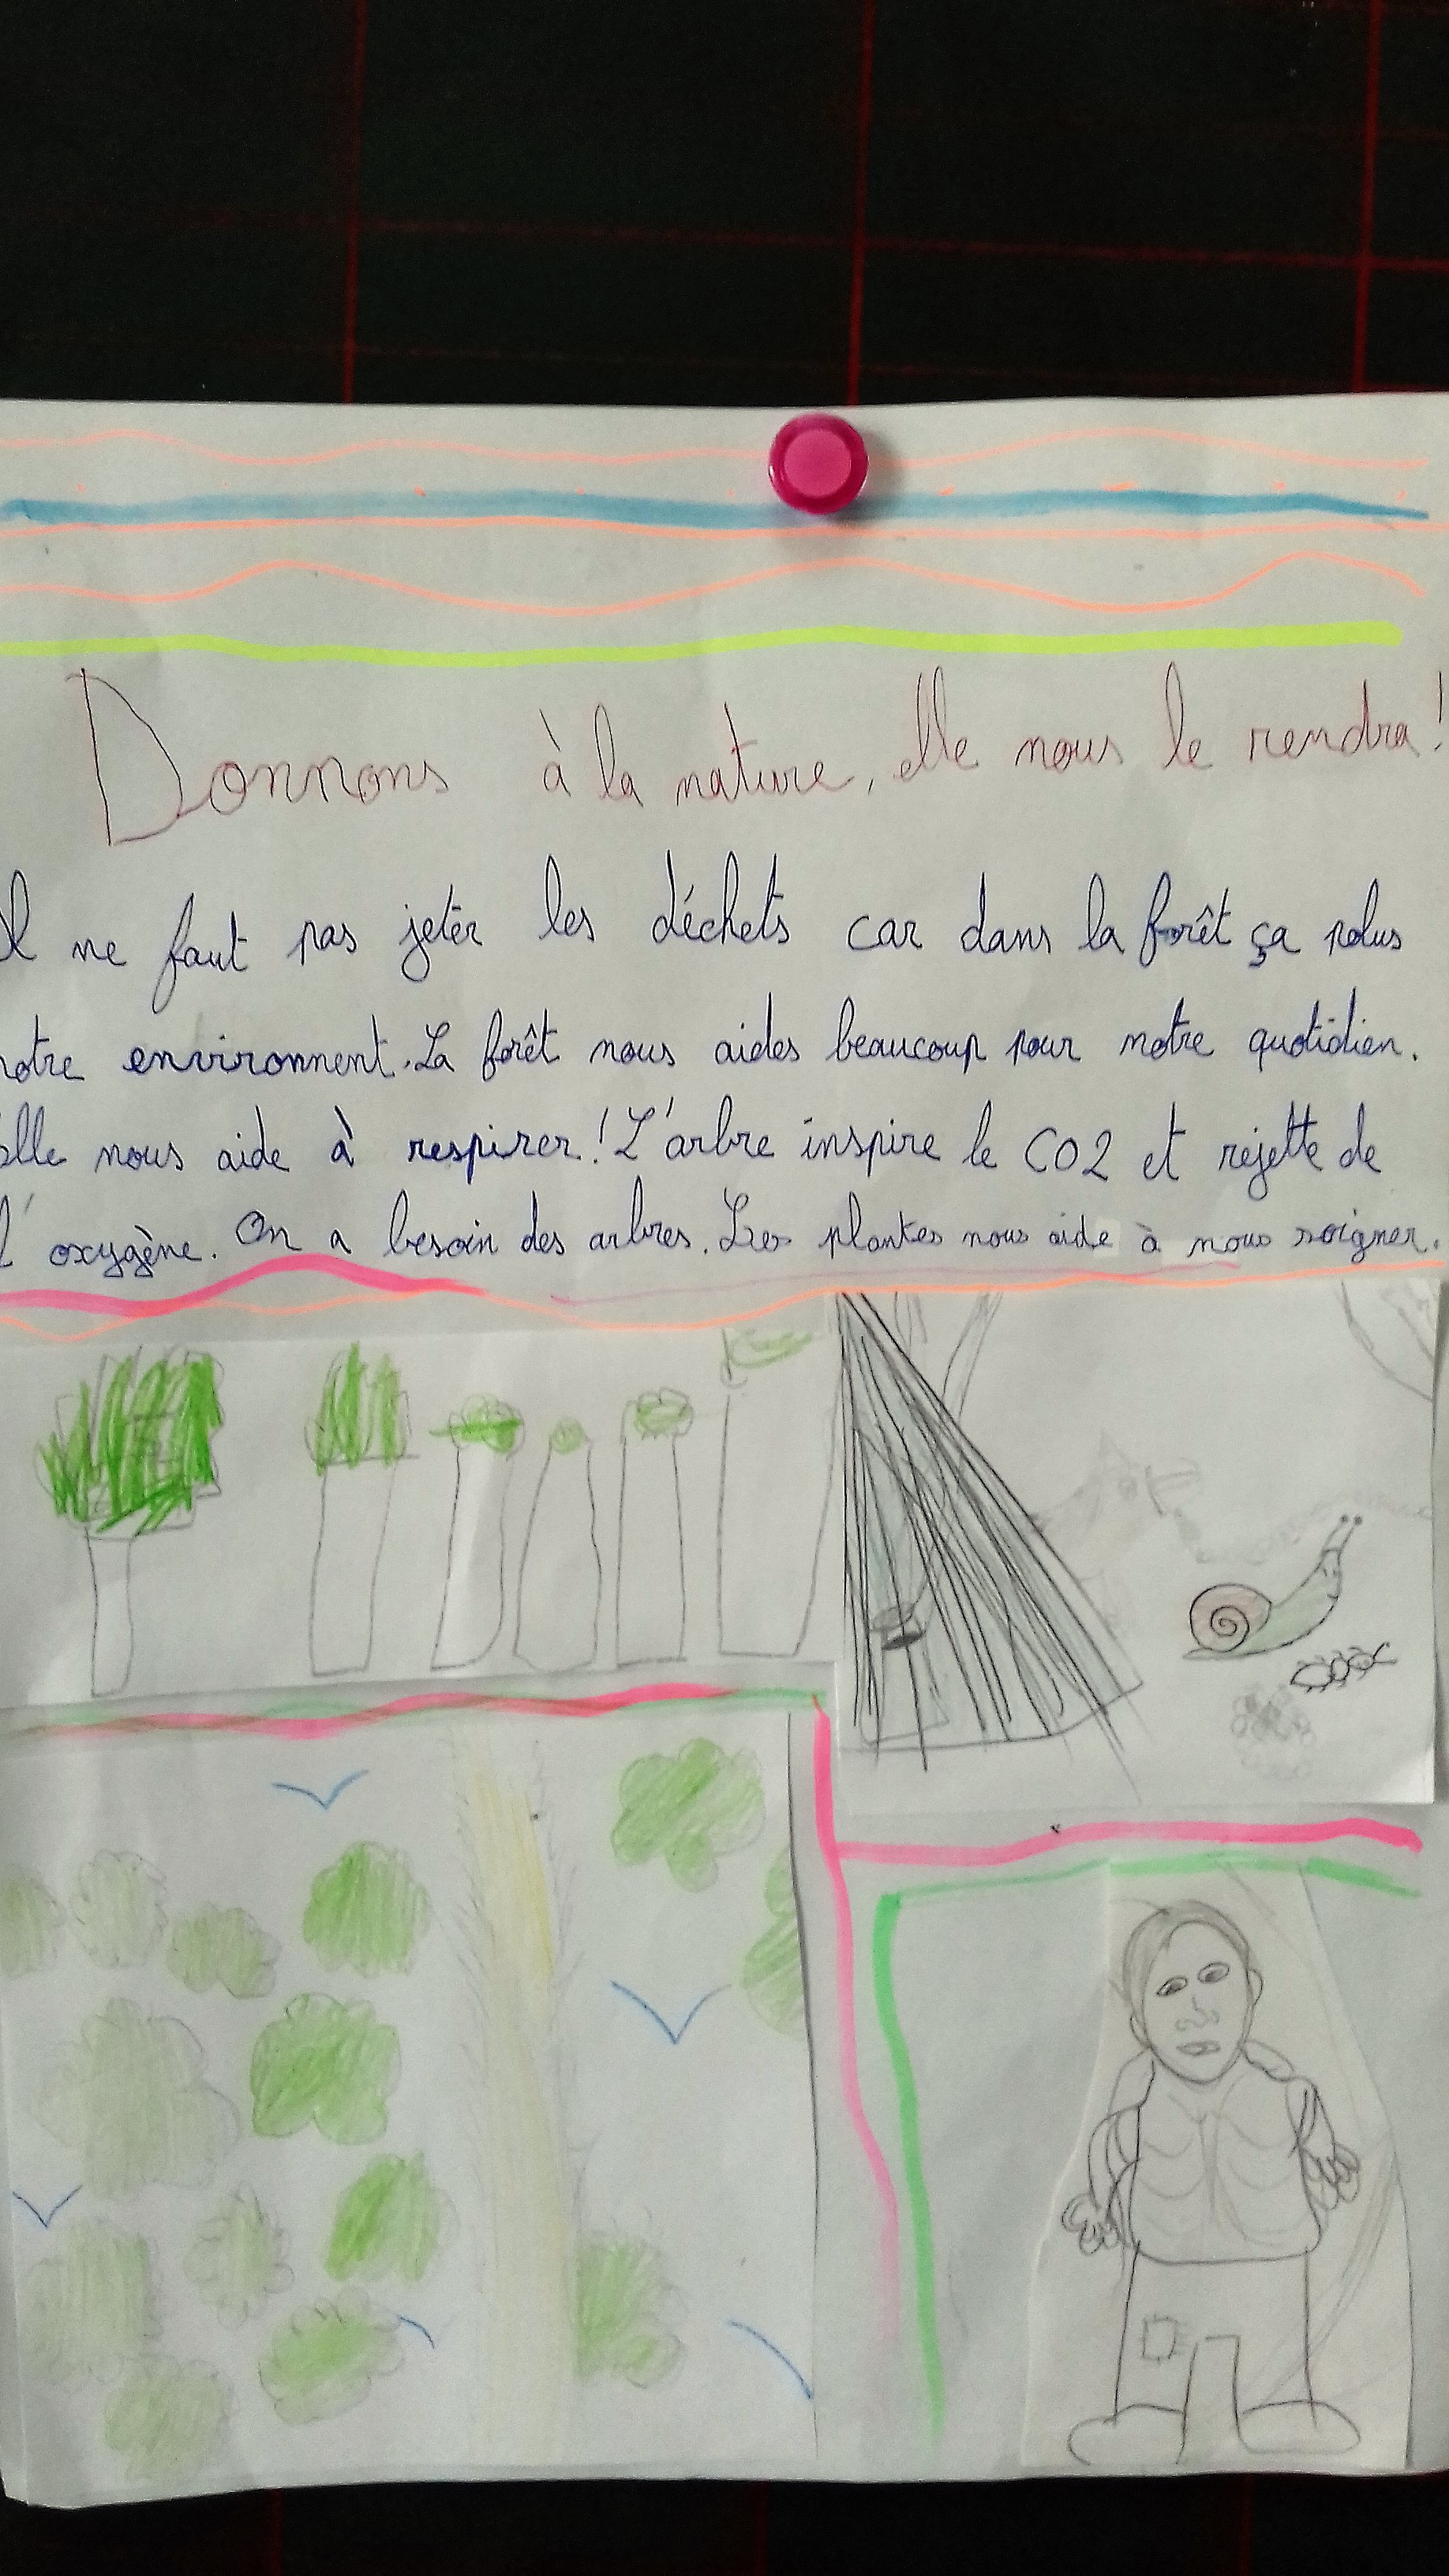 Donnons à la nature, elle nous le rendra!
Il ne faut pas jeter les déchets car dans la forêt ça polus
notre environnent. La forêt nous aides beaucoup pour notre quotidien.
elle nous aide à respirer! L'arbre inspire le CO2 et rejette de
l'oxygène. On a besoin des arbres. Les plantes nous aide à nous soigner.